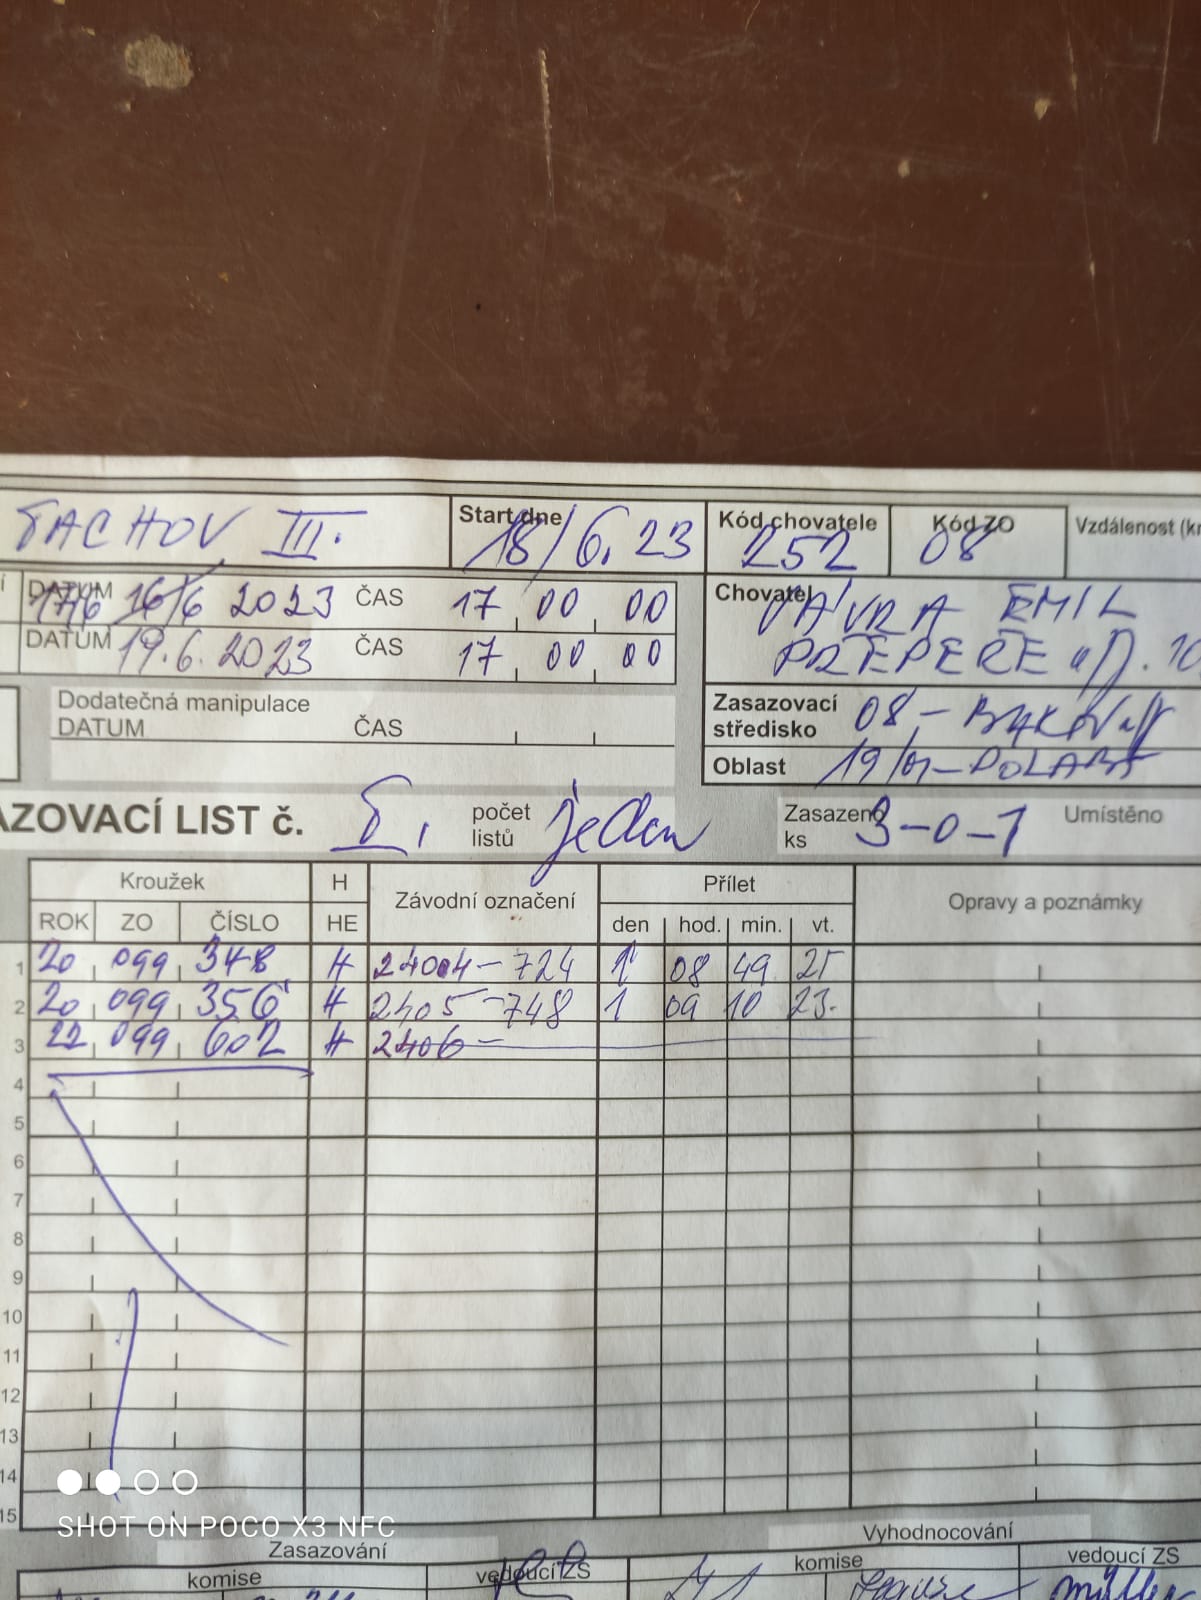 TACHOV III.
Start dne 18/6.23
Kód chovatele 252
Kód ZO 08
Vzdálenost (k
DATUM 16/6 2023 ČAS 17 00 00
DATUM 19.6.2023 ČAS 17 00 00
Chovatel VÁVRA EMIL
PŘEPEŘE
Dodatečná manipulace
DATUM ČAS
Zasazovací
středisko 08 -
Oblast 19/
AZOVACÍ LIST č. I.
počet
listů jeden
Zasazeno
ks 3-0-1
Umístěno
Kroužek H Závodní označení Přílet Opravy a poznámky
ROK ZO ČÍSLO HE den hod. min. vt.
1 20 099 348 H 2404 - 724 1 08 49 25
2 20 099 356 H 2405 - 748 1 09 10 23
3 22 099 602 H 2406 -
4
5
6
7
8
9
10
11
12
13
14
15
SHOT ON POCO X3 NFC
Zasazování Vyhodnocování
komise vedoucí ZS komise vedoucí ZS